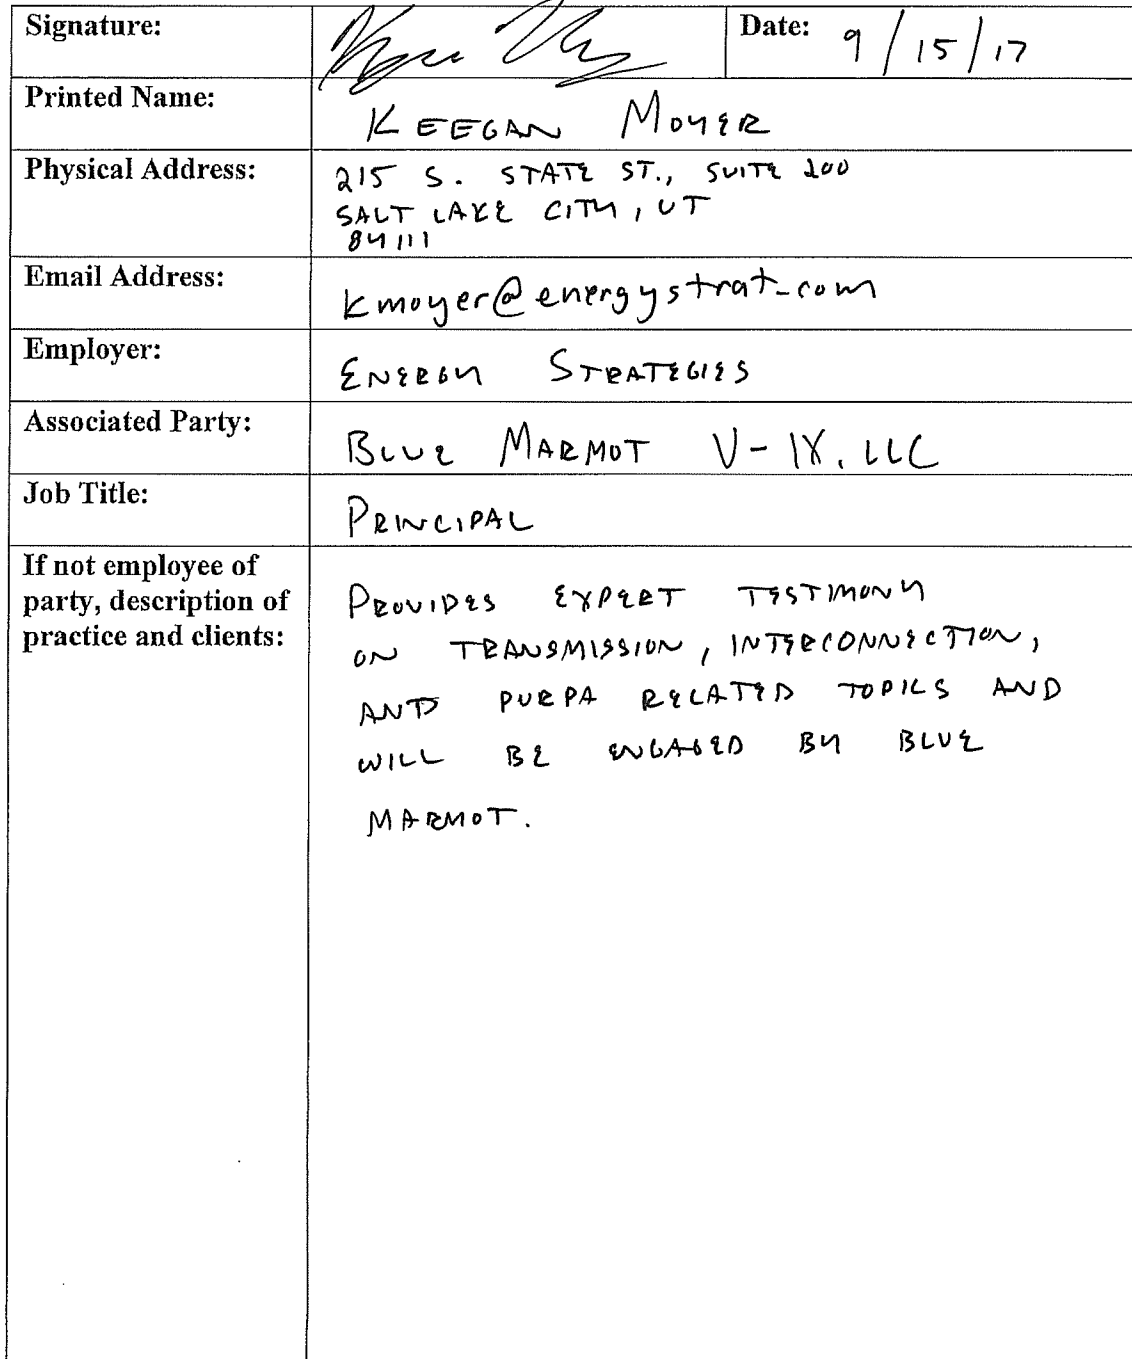 Signature: Date: 9/15/17
Printed Name: KEEGAN MOYER
Physical Address: 215 S. STATE ST., SUITE 200
SALT LAKE CITY, UT
84111
Email Address: kmoyer@energystrat.com
Employer: ENERGY STRATEGIES
Associated Party: BLUE MARMOT V-IX, LLC
Job Title: PRINCIPAL
If not employee of
party, description of
practice and clients:
PROVIDES EXPERT TESTIMONY
ON TRANSMISSION, INTERCONNECTION,
AND PURPA RELATED TOPICS AND
WILL BE ENGAGED BY BLUE
MARMOT.